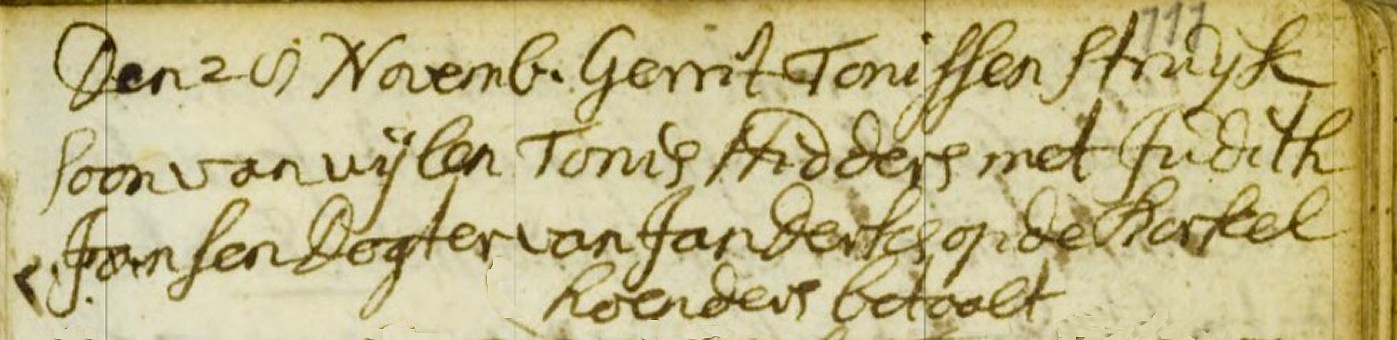 Den 28 Novemb. Gerrit Tonissen Struijk
soon van wijlen Tonis Hidders met Judith
Jansen Dogter van Jan Derks op de
hoenders betaalt